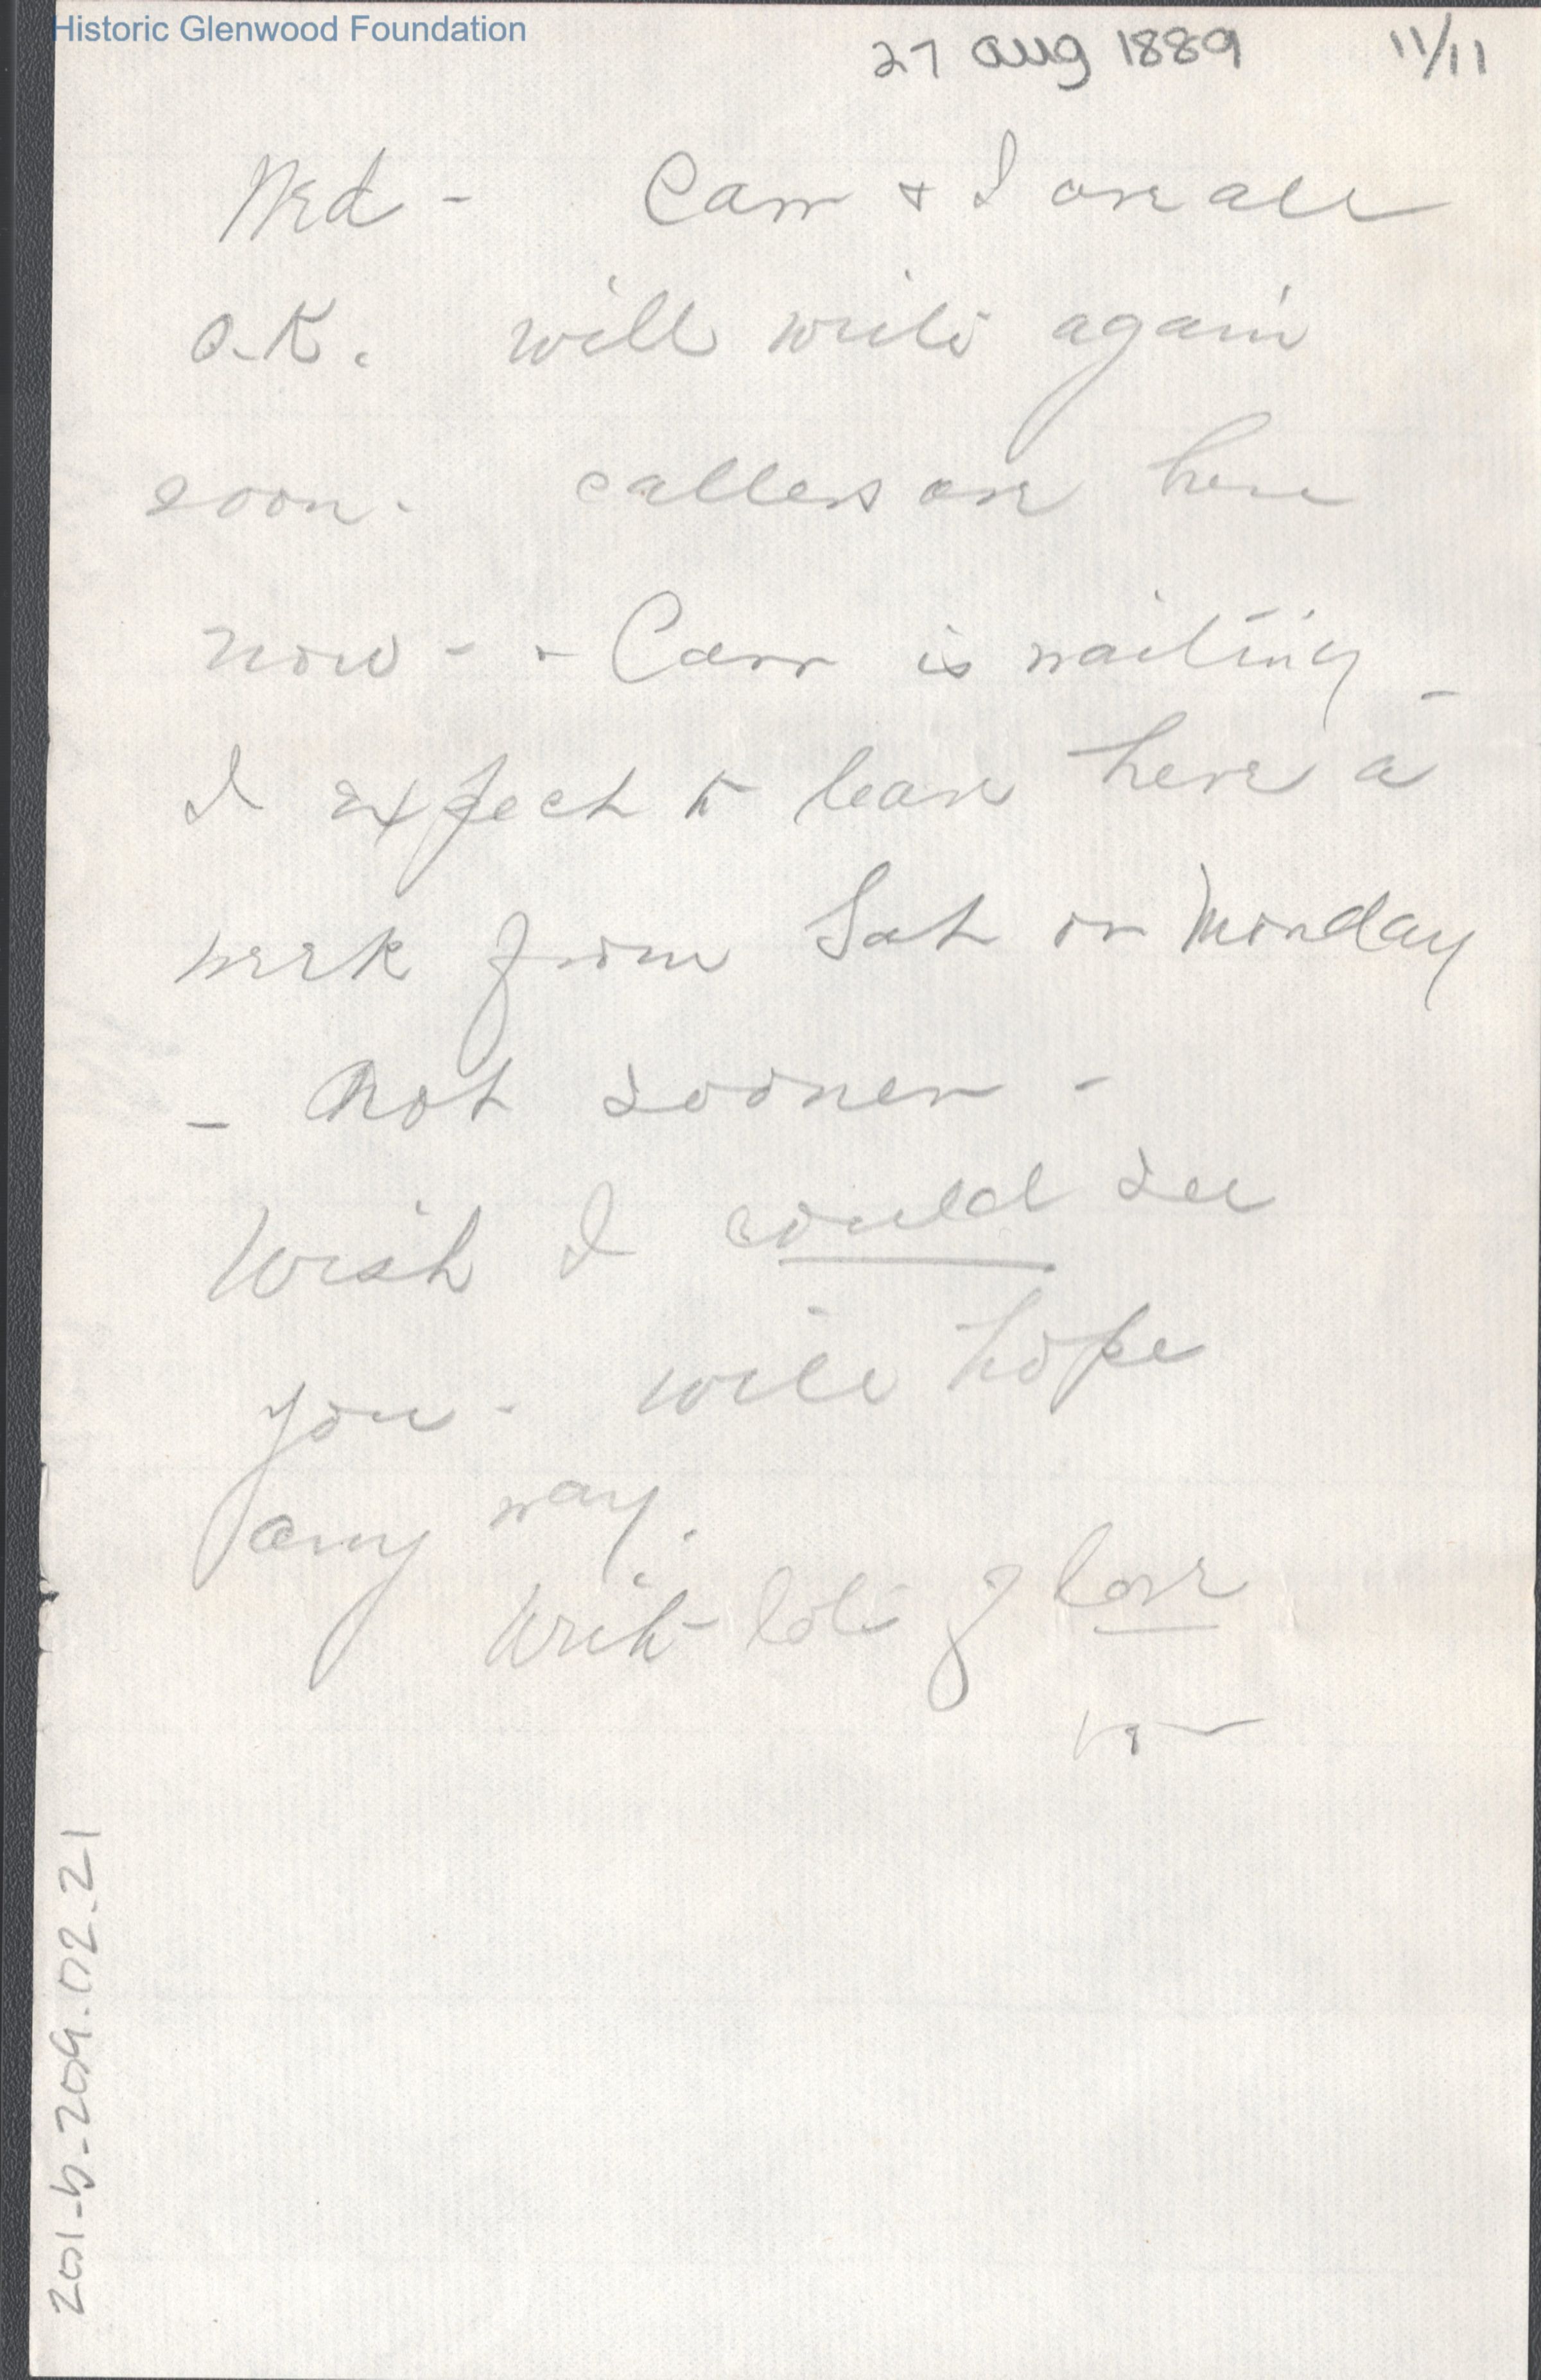 Historic Glenwood Foundation
27 Aug 1889 11/11
Wed - Carr + I are all
O.K. will write again
soon. callers are here
now - + Carr is waiting -
I expect to leave here a
week from Sat or Monday
- not sooner -
Wish I could see
you - will hope
any way.
With lots of love
201-b-209.02.21